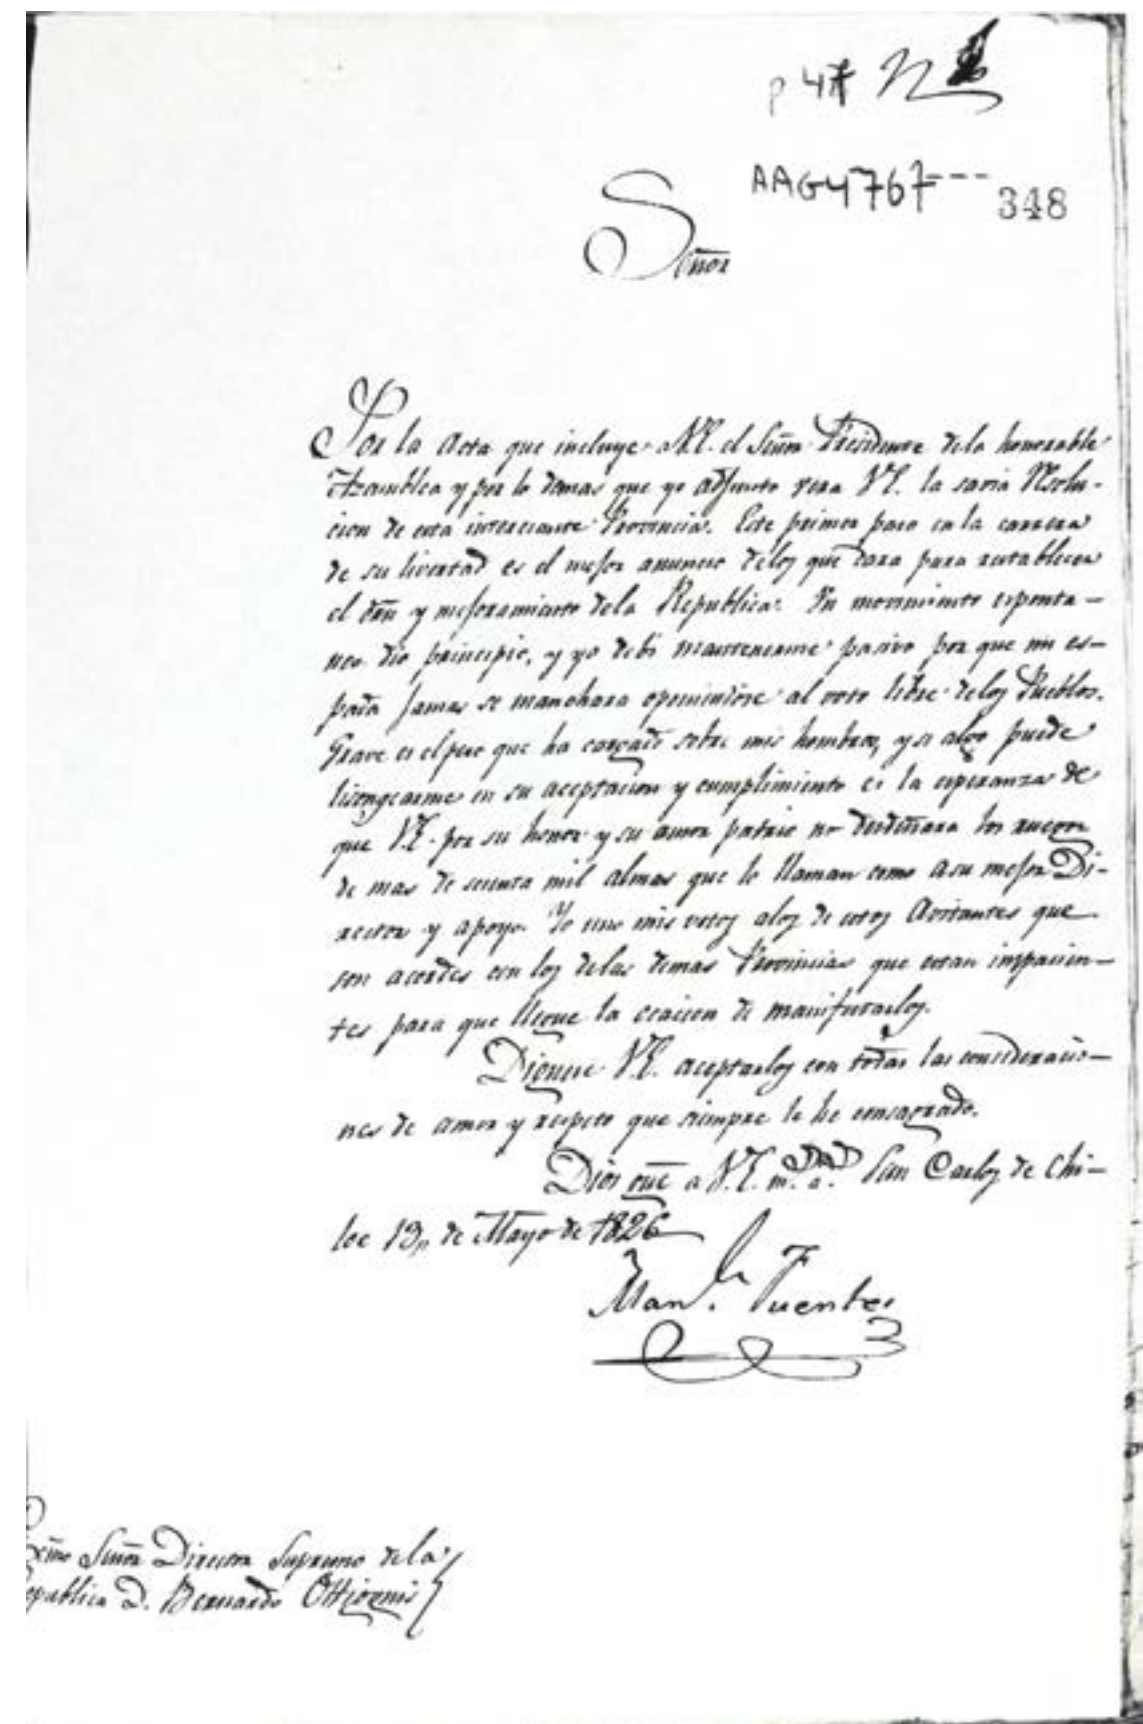 p 4
AAG4767--- 348
Señor
Por la Acta que incluye a V.E. el Señor Presidente dela honorable
Azamblea y por lo demas que yo adjunto vera V.E. la savia Resolu-
cion de esta interesante Provincia. Este primer paso en la carrera
de su livertad es el mejor anuncio delos que dara para restablecer
el órn y mejoramiento dela Republica. Un movimiento esponta-
neo dio principio, y yo debi mantenerme pasivo por que mi es-
pada jamas se manchara oponiendose al voto libre delos Pueblos.
Grave es el peso que ha cargado sobre mis hombros, y si algo puede
lisongearme en su aceptacion y cumplimiento es la esperanza de
que V.E. por su honor y su amor patrio no desdeñara los ruegos
de mas de sesenta mil almas que lo llaman como a su mejor Di-
rector y apoyo. Yo uno mis votos alos de estos Avitantes que
son acordes con los delas demas Provincias que estan impacien-
tes para que llegue la ocacion de manifestarlos.
Dignese V.E. aceptarlos con todas las consideracio-
nes de amor y respeto que siempre le he consagrado.
Dios gue a V.E. m.s a.s San Carlos de Chi-
loe 13,, de Mayo de 1826
Man.l Fuentes
Exmo Señor Director Supremo dela
Republica D. Bernardo OHigenis